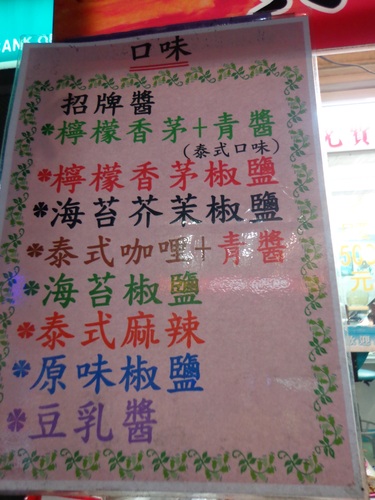 BANK OF
口味
招牌醬
*檸檬香茅+青醬
(泰式口味)
*檸檬香茅椒鹽
*海苔芥茉椒鹽
*泰式咖哩+青醬
*海苔椒鹽
*泰式麻辣
*原味椒鹽
*豆乳醬
元